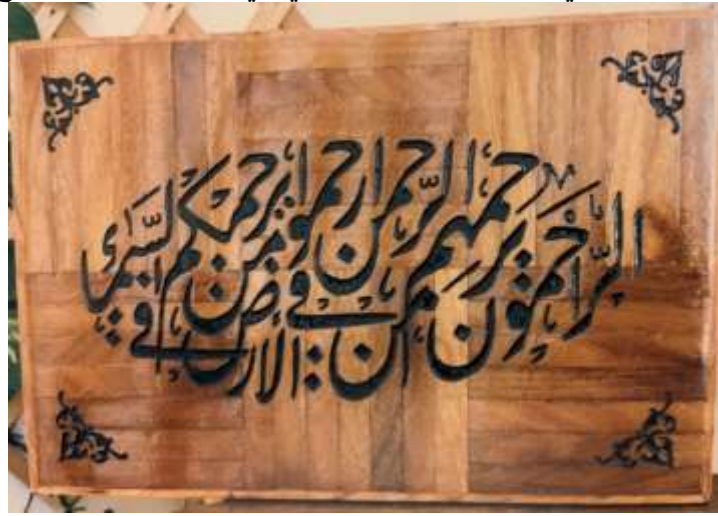 الراحمون يرحمهم الرحمن ارحموا من في الأرض يرحمكم من في السماء